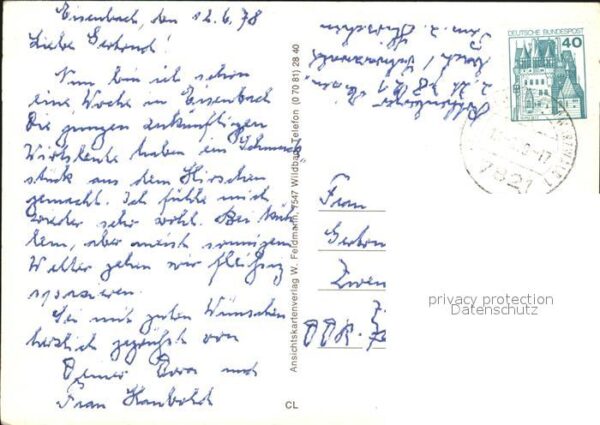 Eisenbach, den 12.6.78
Liebe Gertrud!
Nun bin ich schon
eine Woche in Eisenbach
Die jungen zukünftigen
Wirtsleute haben ein Schmuck
stück aus dem Hirschen
gemacht. Ich fühle mich
wieder sehr wohl. Bei küh
lem, aber meist sonnigem
Wetter gehen wir fleißig
spazieren.
Sei mit guten Wünschen
herzlich gegrüßt von
Deiner Dora und
Frau Haubold
Ansichtskartenverlag W. Feldmann, 7547 Wildbad, Telefon (0 70 81) 28 40
CL
z. Zt. 7821 Eisen,
bach / Schwarzwald
Hirschen
DEUTSCHE BUNDESPOST
40
7821
Frau
DDR
privacy protection
Datenschutz